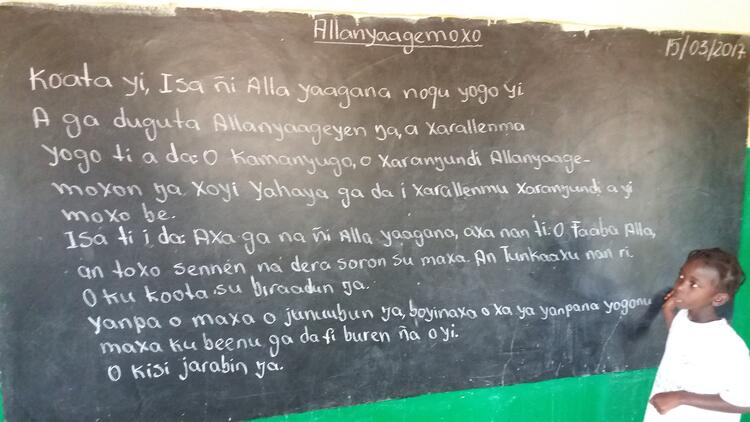 Allanyaagemoxo
15/03/2017
Koota yi, Isa ñi Alla yaagana noqu yogo yi
A ga duguta Allanyaageyen ŋa, a xarallenma
yogo ti a da: O Kamanyugo, o xaranŋundi Allanyaage-
moxon ŋa xoyi Yahaya ga da i xarallenmu xaranŋundi a yi
moxo be.
Isa ti i da: Axa ga na ñi Alla yaagana, axa nan ti: O Faaba Alla,
an toxo sennen na dera soron su maxa. An Tunkaaxu nan ri.
O ku koota su biraadun ŋa.
Yanpa o maxa o junuubun ŋa, bayinaxa o xa ya yanpana yogonu
maxa ku beenu ga dafi buren ña o yi.
O kisi jarabin ŋa.